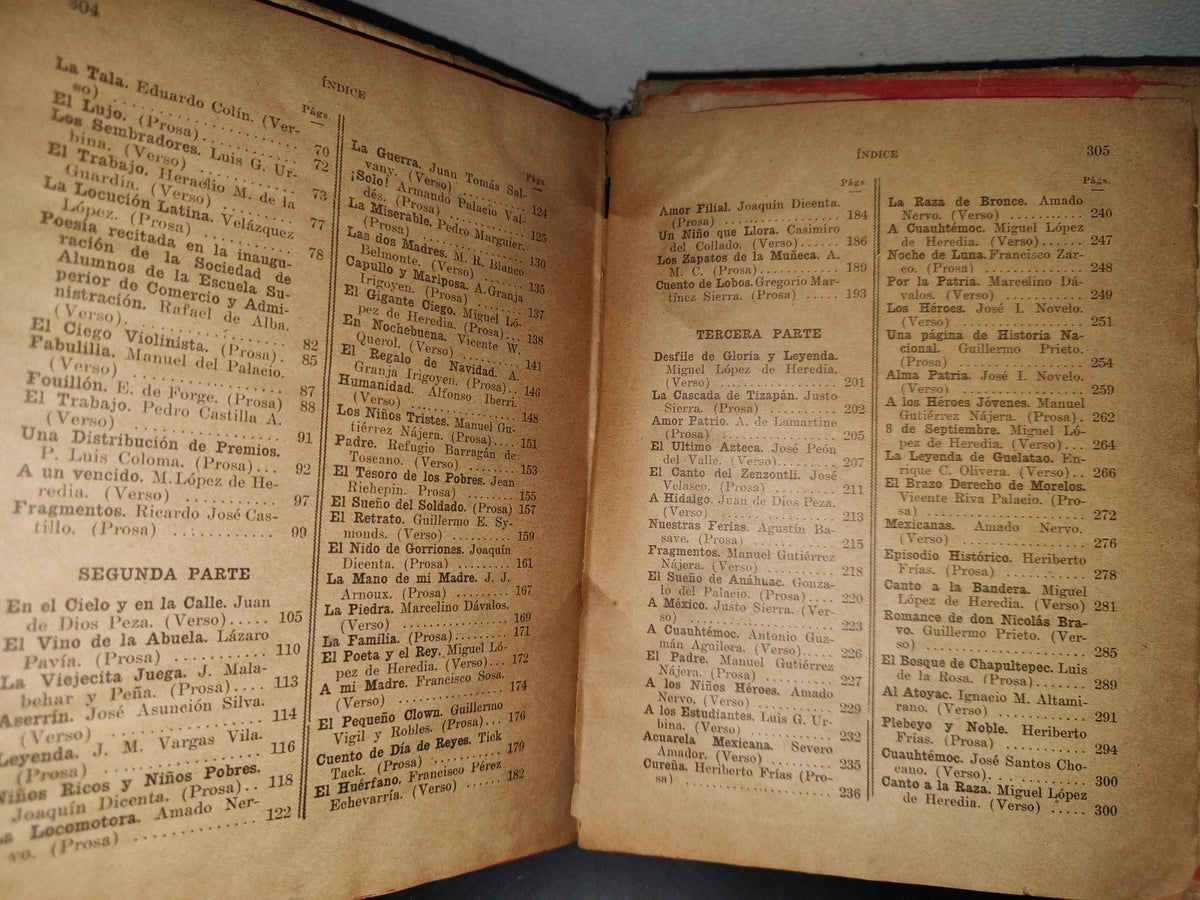 304
ÍNDICE
Págs.
La Tala. Eduardo Colín. (Ver-
so) ........................ 70
El Lujo. (Prosa) ............ 72
Los Sembradores. Luis G. Ur-
bina. (Verso) ............... 73
El Trabajo. Heraclio M. de la
Guardia. (Verso) ............ 77
La Locución Latina. Velázquez
López. (Prosa) .............. 78
Poesía recitada en la inaugu-
ración de la Sociedad de
Alumnos de la Escuela Su-
perior de Comercio y Admi-
nistración. Rafael de Alba.
(Verso) ..................... 82
El Ciego Violinista. (Prosa). 85
Fabulilla. Manuel del Palacio.
(Verso) ..................... 87
Fouillón. E. de Forge. (Prosa) 88
El Trabajo. Pedro Castilla A.
(Verso) ..................... 91
Una Distribución de Premios.
P. Luis Coloma. (Prosa)... 92
A un vencido. M. López de He-
redia. (Verso) .............. 97
Fragmentos. Ricardo José Cas-
tillo. (Prosa) .............. 99
SEGUNDA PARTE
En el Cielo y en la Calle. Juan
de Dios Peza. (Verso)..... 105
El Vino de la Abuela. Lázaro
Pavía. (Prosa) ............ 110
La Viejecita Juega. J. Mala-
behar y Peña. (Prosa).... 113
Aserrín. José Asunción Silva.
(Verso) ................... 114
Leyenda. J. M. Vargas Vila.
(Prosa) ................... 116
Niños Ricos y Niños Pobres.
Joaquín Dicenta. (Prosa).. 118
La Locomotora. Amado Ner-
vo. (Prosa) ............... 122
Págs.
La Guerra. Juan Tomás Sal-
vany. (Verso) ............. 124
¡Solo! Armando Palacio Val-
dés. (Prosa) .............. 125
La Miserable. Pedro Marguier.
(Prosa) ................... 130
Las dos Madres. M. R. Blanco
Belmonte. (Verso) ......... 135
Capullo y Mariposa. A. Granja
Irigoyen. (Prosa) ......... 137
El Gigante Ciego. Miguel Ló-
pez de Heredia. (Prosa)... 138
En Nochebuena. Vicente W.
Querol. (Verso) ........... 141
El Regalo de Navidad. A.
Granja Irigoyen. (Prosa).. 146
Humanidad. Alfonso Iberri.
(Verso) ................... 148
Los Niños Tristes. Manuel Gu-
tiérrez Nájera. (Prosa).... 151
Padre. Refugio Barragán de
Toscano. (Verso) .......... 153
El Tesoro de los Pobres. Jean
Richepin. Prosa) .......... 155
El Sueño del Soldado. (Prosa) 157
El Retrato. Guillermo E. Sy-
monds. (Verso) ............ 159
El Nido de Gorriones. Joaquín
Dicenta. (Prosa) .......... 161
La Mano de mi Madre. J. J.
Arnoux. (Prosa) ........... 167
La Piedra. Marcelino Dávalos.
(Verso) ................... 169
La Familia. (Prosa)........ 171
El Poeta y el Rey. Miguel Ló-
pez de Heredia. (Verso)... 172
A mi Madre. Francisco Sosa.
(Verso) ................... 174
El Pequeño Clown. Guillermo
Vigil y Robles. (Prosa)... 176
Cuento de Día de Reyes. Tick
Tack. (Prosa) ............. 179
El Huérfano. Francisco Pérez
Echevarría. (Verso) ....... 182
ÍNDICE
305
Págs.
Amor Filial. Joaquín Dicenta.
(Prosa) ................... 184
Un Niño que Llora. Casimiro
del Collado. (Verso)...... 186
Los Zapatos de la Muñeca. A.
M. C. (Prosa) ............. 189
Cuento de Lobos. Gregorio Mar-
tínez Sierra. (Prosa) ..... 193
TERCERA PARTE
Desfile de Gloria y Leyenda.
Miguel López de Heredia.
(Verso) ................... 201
La Cascada de Tizapán. Justo
Sierra. (Prosa) ........... 202
Amor Patrio. A. de Lamartine
(Prosa) ................... 205
El Ultimo Azteca. José Peón
del Valle. (Verso)........ 207
El Canto del Zenzontli. José
Velasco. (Prosa) .......... 211
A Hidalgo. Juan de Dios Peza.
(Verso) ................... 213
Nuestras Ferias. Agustín Ba-
save. (Prosa) ............. 215
Fragmentos. Manuel Gutiérrez
Nájera. (Verso) ........... 218
El Sueño de Anáhuac. Gonza-
lo del Palacio. (Prosa).... 220
A México. Justo Sierra. (Ver-
so) ....................... 223
A Cuauhtémoc. Antonio Guz-
mán Aguilera. (Verso)..... 226
El Padre. Manuel Gutiérrez
Nájera. (Prosa) ........... 227
A los Niños Héroes. Amado
Nervo. (Verso) ............ 229
A los Estudiantes. Luis G. Ur-
bina. (Verso) ............. 232
Acuarela Mexicana. Severo
Amador. (Verso) ........... 235
Cureña. Heriberto Frías (Pro-
sa) ....................... 236
Págs.
La Raza de Bronce. Amado
Nervo. (Verso) ............ 240
A Cuauhtémoc. Miguel López
de Heredia. (Verso)....... 247
Noche de Luna. Francisco Zar-
co. (Prosa) ............... 248
Por la Patria. Marcelino Dá-
valos. (Verso) ............ 249
Los Héroes. José I. Novelo.
(Verso) ................... 251
Una página de Historia Na-
cional. Guillermo Prieto.
(Prosa) ................... 254
Alma Patria. José I. Novelo.
(Verso) ................... 259
A los Héroes Jóvenes. Manuel
Gutiérrez Nájera. (Prosa). 262
8 de Septiembre. Miguel Ló-
pez de Heredia. (Verso).. 264
La Leyenda de Guelatao. En-
rique C. Olivera. (Verso).. 266
El Brazo Derecho de Morelos.
Vicente Riva Palacio. (Pro-
sa) ....................... 272
Mexicanas. Amado Nervo.
(Verso) ................... 276
Episodio Histórico. Heriberto
Frías. (Prosa) ............ 278
Canto a la Bandera. Miguel
López de Heredia. (Verso) 281
Romance de don Nicolás Bra-
vo. Guillermo Prieto. (Ver-
so) ....................... 285
El Bosque de Chapultepec. Luis
de la Rosa. (Prosa) ....... 289
Al Atoyac. Ignacio M. Altami-
rano. (Verso) ............. 291
Plebeyo y Noble. Heriberto
Frías. (Prosa) ............ 294
Cuauhtémoc. José Santos Cho-
cano. (Verso).............. 300
Canto a la Raza. Miguel López
de Heredia. (Verso) ..... 300